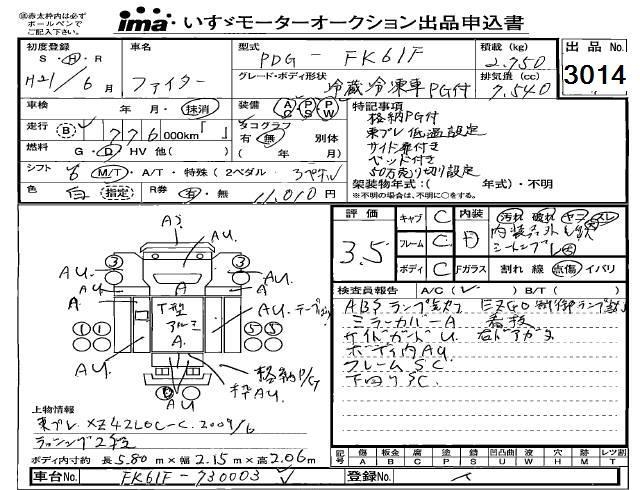 ㊟赤太枠内は必ず
ボールペンで
ご記入下さい。
ima いすゞモーターオークション出品申込書
初度登録
S・Ⓗ・R
H21/6月
車名
ファイター
型式
PDG-FK61F
積載(kg)
2,750
出品No.
3014
グレード・ボディ形状
冷蔵冷凍車PG付
排気量(cc)
7,540
車検
年 月・抹消
装備
AC PS PW
特記事項
格納PG付
東プレ低温設定
サイド扉付き
ベッド付き
50万売り切り設定
走行
B
776,000km『 』
タコグラフ
有・無 別体
( 年 月)
燃料
G・D HV 他( )
シフト
6 M/T・A/T・特殊(2ペダル 3ペダル
架装物年式:( 年式)・不明
※不明の場合は、不明に○をする。
色
白 指定
R券
有・無 11,010円
評価
3.5
キャブ C
フレーム C
ボディ C
内装 D
汚れ 破れ ヤニ スレ
Fガラス
割れ 線 点傷 イバリ
検査員報告
A/C( ) B/T( )
ABSランプ点灯
ミラーカバーA 看板
サイドガードU
ボディ内AU
フレームSC
下回りSC.
3 3
1 1 5 5
AU
AU
AU
A
T型
アルミ
A.
AU
格納P/G
枠AU
AU
上物情報
東プレ XZ42LOC-C. 2009/6
ラッシング2段
ボディ内寸約 長5.80m×幅2.15m×高2.06m
記号
傷 板金 腐 塗 錆 凹凸曲 液 穴 跡 レツ割
A B C P S U W H M T
車台No. FK61F-730003
登録No.